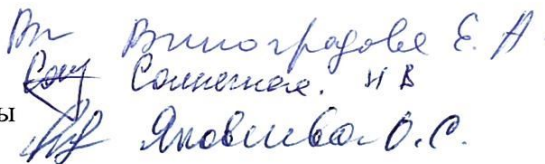 Виноградова Е. А
Солнечная. Н В
ы Яковлева О.С.